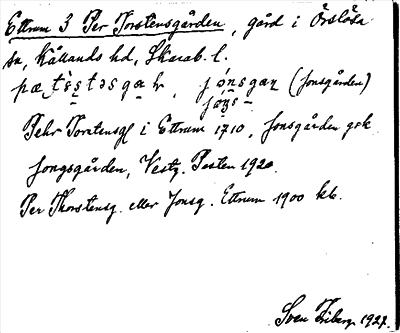 Ettrum 3 Per Torstensgården, gård i Örslösa
sn, Kållands hd, Skarab. l.
jönsgaɳ (Jonsgården)
Pehr Torstensgl i Ettrum 1710, Jonsgården gek
Jongsgården, Vestg. Posten 1920.
Per Thorsteng. eller Jonsg. Ettrum 1900 kb.
Sven Friberg 1927.